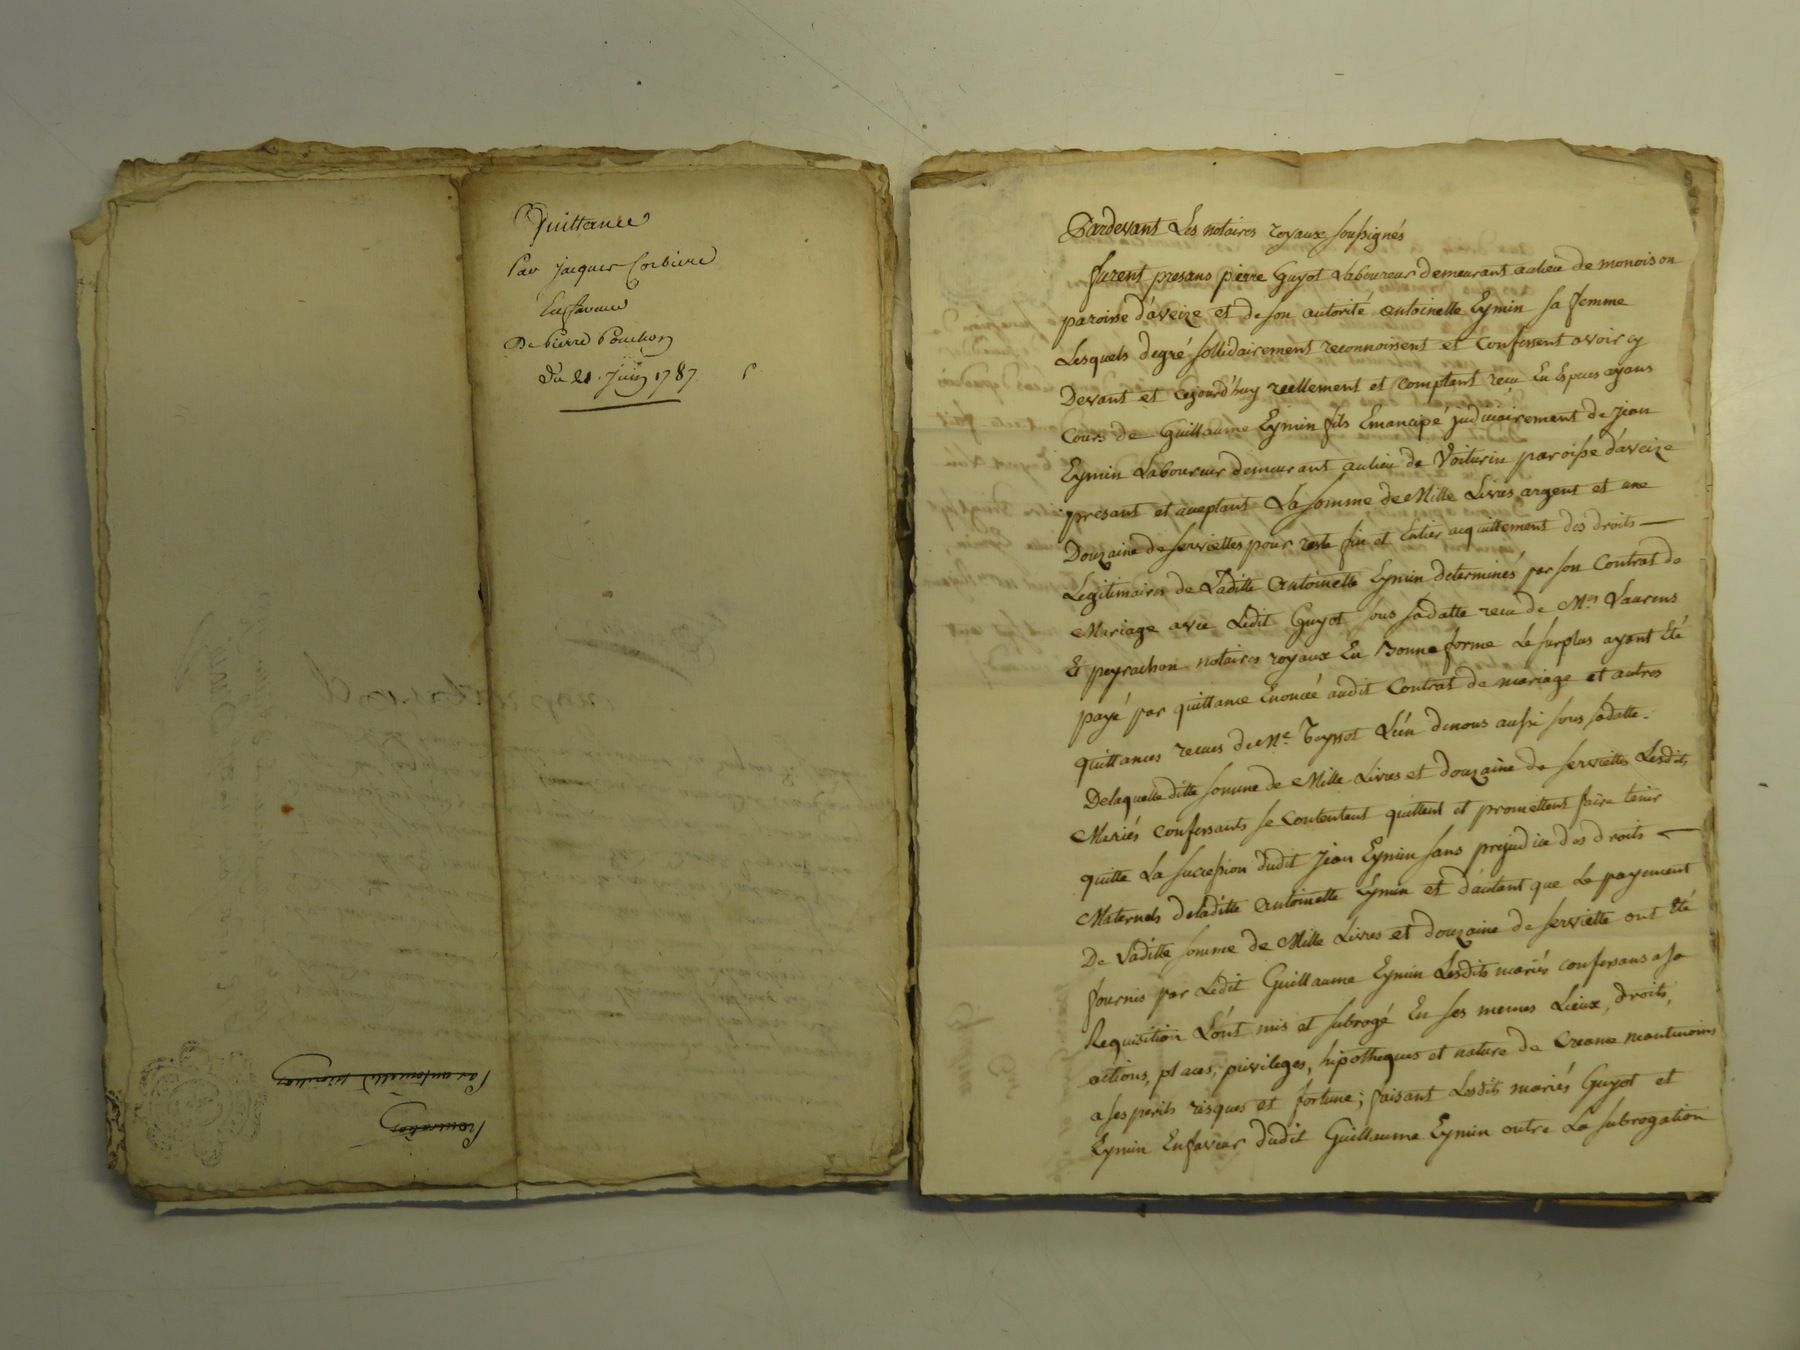 Quittance
Par jacques Corbiere
En faveur
De Pierre Pouchon
Du 21 Juin 1787
Par antoinette
Procuration
Pardevant Les notaires royaux soussignés
furent presans pierre Guyot Laboureur demeurant au lieu de monoison
paroisse d'aveize et de son autorité antoinette Eymin sa femme
Lesquels degré sollidairement reconnoissent et Confessent avoir cy
Devant et cejourd'huy reellement et comptant recu En Especes ayans
Cours de Guillaume Eymin fils Emancipé judiciairement de Jean
Eymin Laboureur demeurant au lieu de Voiturin paroisse d'aveize
présant et aceptant La somme de Mille Livres argent et une
Douzaine de serviettes pour reste fin et Entier acquittement des droits
Legitimaires de Laditte Antoinette Eymin determinés par son Contrat de
Mariage avec Ledit Guyot sous sa datte recu de Mes Laurens
Et peyrachon notaires royaux En Bonne forme Le surplus ayant Eté
payé par quittance Enoncée audit Contrat de mariage et autres
quittances recues de Me. L'un de nous aussi sous sa datte.
De laquelle ditte somme de Mille Livres et douzaine de serviettes Lesdits
Mariés confessants se Contentent quittent et promettent faire tenir
quitte La sucession dudit Jean Eymin sans prejudice des droits
Maternels de laditte Antoinette Eymin et d'autant que Le payement
De Laditte somme de Mille Livres et douzaine de serviette ont Eté
fournis par Ledit Guillaume Eymin Lesdits mariés confessans a sa
Requisition L'ont mis et subrogé En ses memes Lieux, droits,
actions, places, privileges, hipotheques et nature de Creance neantmoins
a ses perils risques et fortune; faisant Lesdits mariés Guyot et
Eymin En faveur dudit Guillaume Eymin outre La subrogation